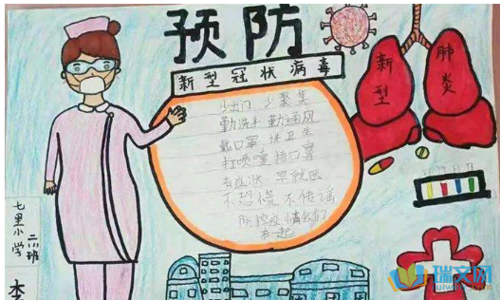 预防
新型冠状病毒
少出门 少聚集
勤洗手 勤通风
戴口罩 讲卫生
打喷嚏 捂口罩
有症状 早就医
不恐慌 不传谣
防控疫情我们
在一起
新型
肺炎
七里小学
二(1)班
李
瑞文网